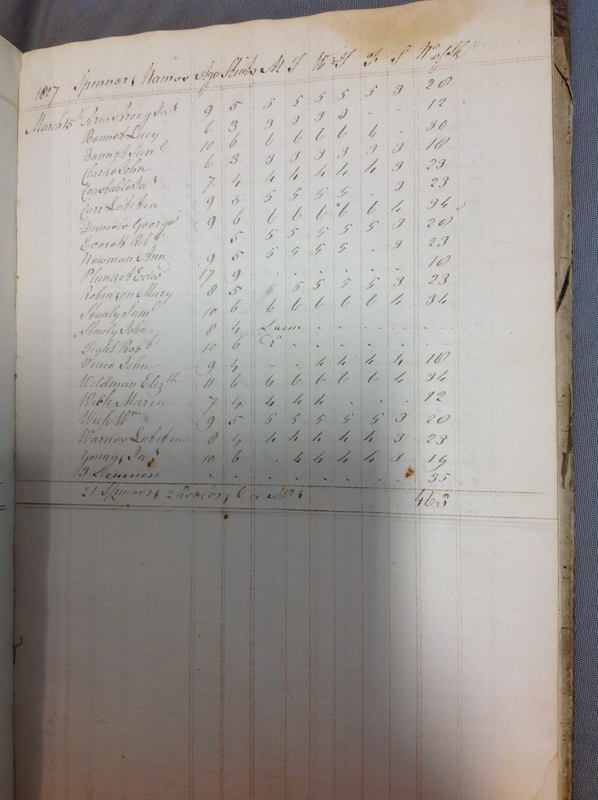 1807 Spinners Names Age Stints M T W T F S
March 15th Armstrong Jas 9 5 5 5 5 5 5 3 28
Bennet Lucy 6 3 3 3 3 3 - - 12
10 6 6 6 6 6 6 - 30
Clarke John 6 3 3 3 3 3 3 3 18
Constable Jas 7 4 4 4 4 4 4 3 23
Carr 9 5 5 5 5 5 - 3 23
George 9 6 6 6 6 6 6 4 34
Everett Robt 5 5 5 5 5 5 3 28
Newman Ann 9 5 5 5 5 5 . 3 23
Plunket Edwd 17 9 . . . . . . 18
Robinson Mary 8 5 5 5 5 5 3 23
Stanly Saml 10 6 6 6 6 6 6 4 34
Stanly John 8 4 Lame . . . . .
Tight Robt 10 6 Do . . . . .
Vince John 9 4 . . 4 4 4 4 18
Wildman Elizth 11 6 6 6 6 6 6 4 34
Wick Maria 7 4 4 4 4 . . . 12
Wick Wm 9 5 5 5 5 5 5 3 28
Warnes 8 4 4 4 4 4 4 3 23
Young Jas 10 6 . 4 4 4 4 3 19
3 . . . . . . 35
21 Spinners 2 463